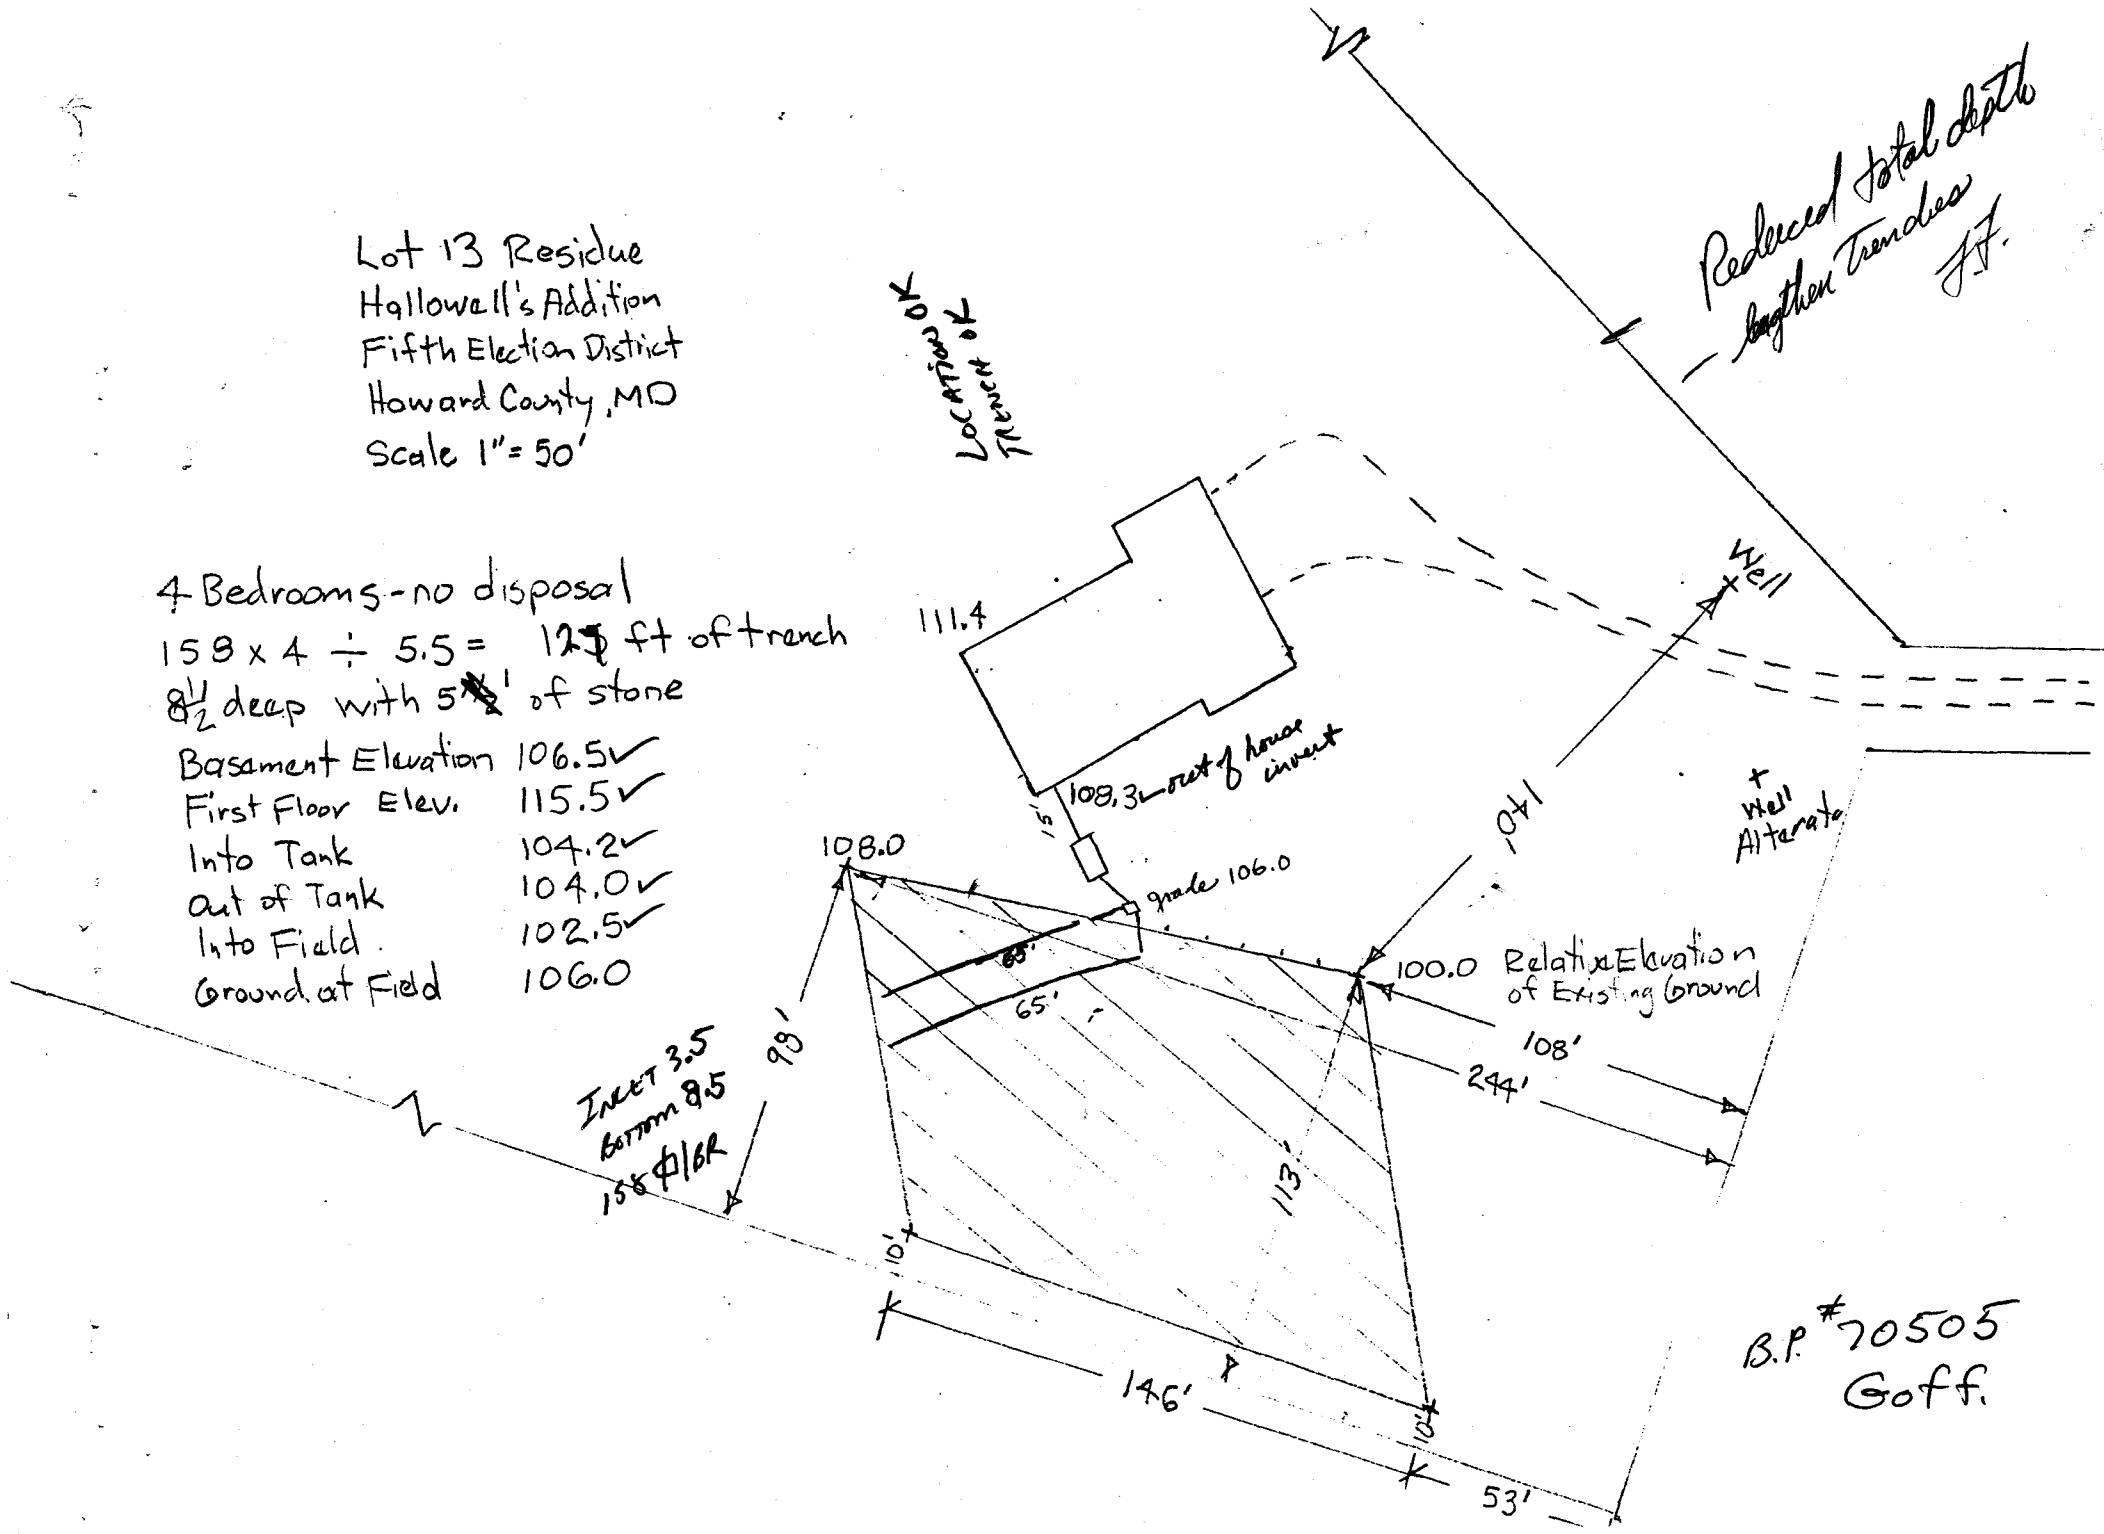 Lot 13 Residue
Hallowell's Addition
Fifth Election District
Howard County, MD
Scale 1"= 50'
LOCATION OK
TRENCH OK
Reduced total depth
— lengthen Trenches
J.F.
4 Bedrooms - no disposal
158 x 4 ÷ 5.5 = ft of trench
8 1/2 deep with 5' of stone
Basement Elevation 106.5✓
First Floor Elev. 115.5✓
Into Tank 104.2✓
Out of Tank 104.0✓
Into Field 102.5✓
Ground at Field 106.0
111.4
Well
108.3 out of house
invert
15'
140'
+
Well
Alternate
108.0
grade 106.0
65'
65'
100.0 Relative Elevation
of Existing Ground
98'
108'
244'
INLET 3.5
BOTTOM 8.5
158 ⏀/BR
113'
10'
146'
10'
53'
B.P. #70505
Goff.